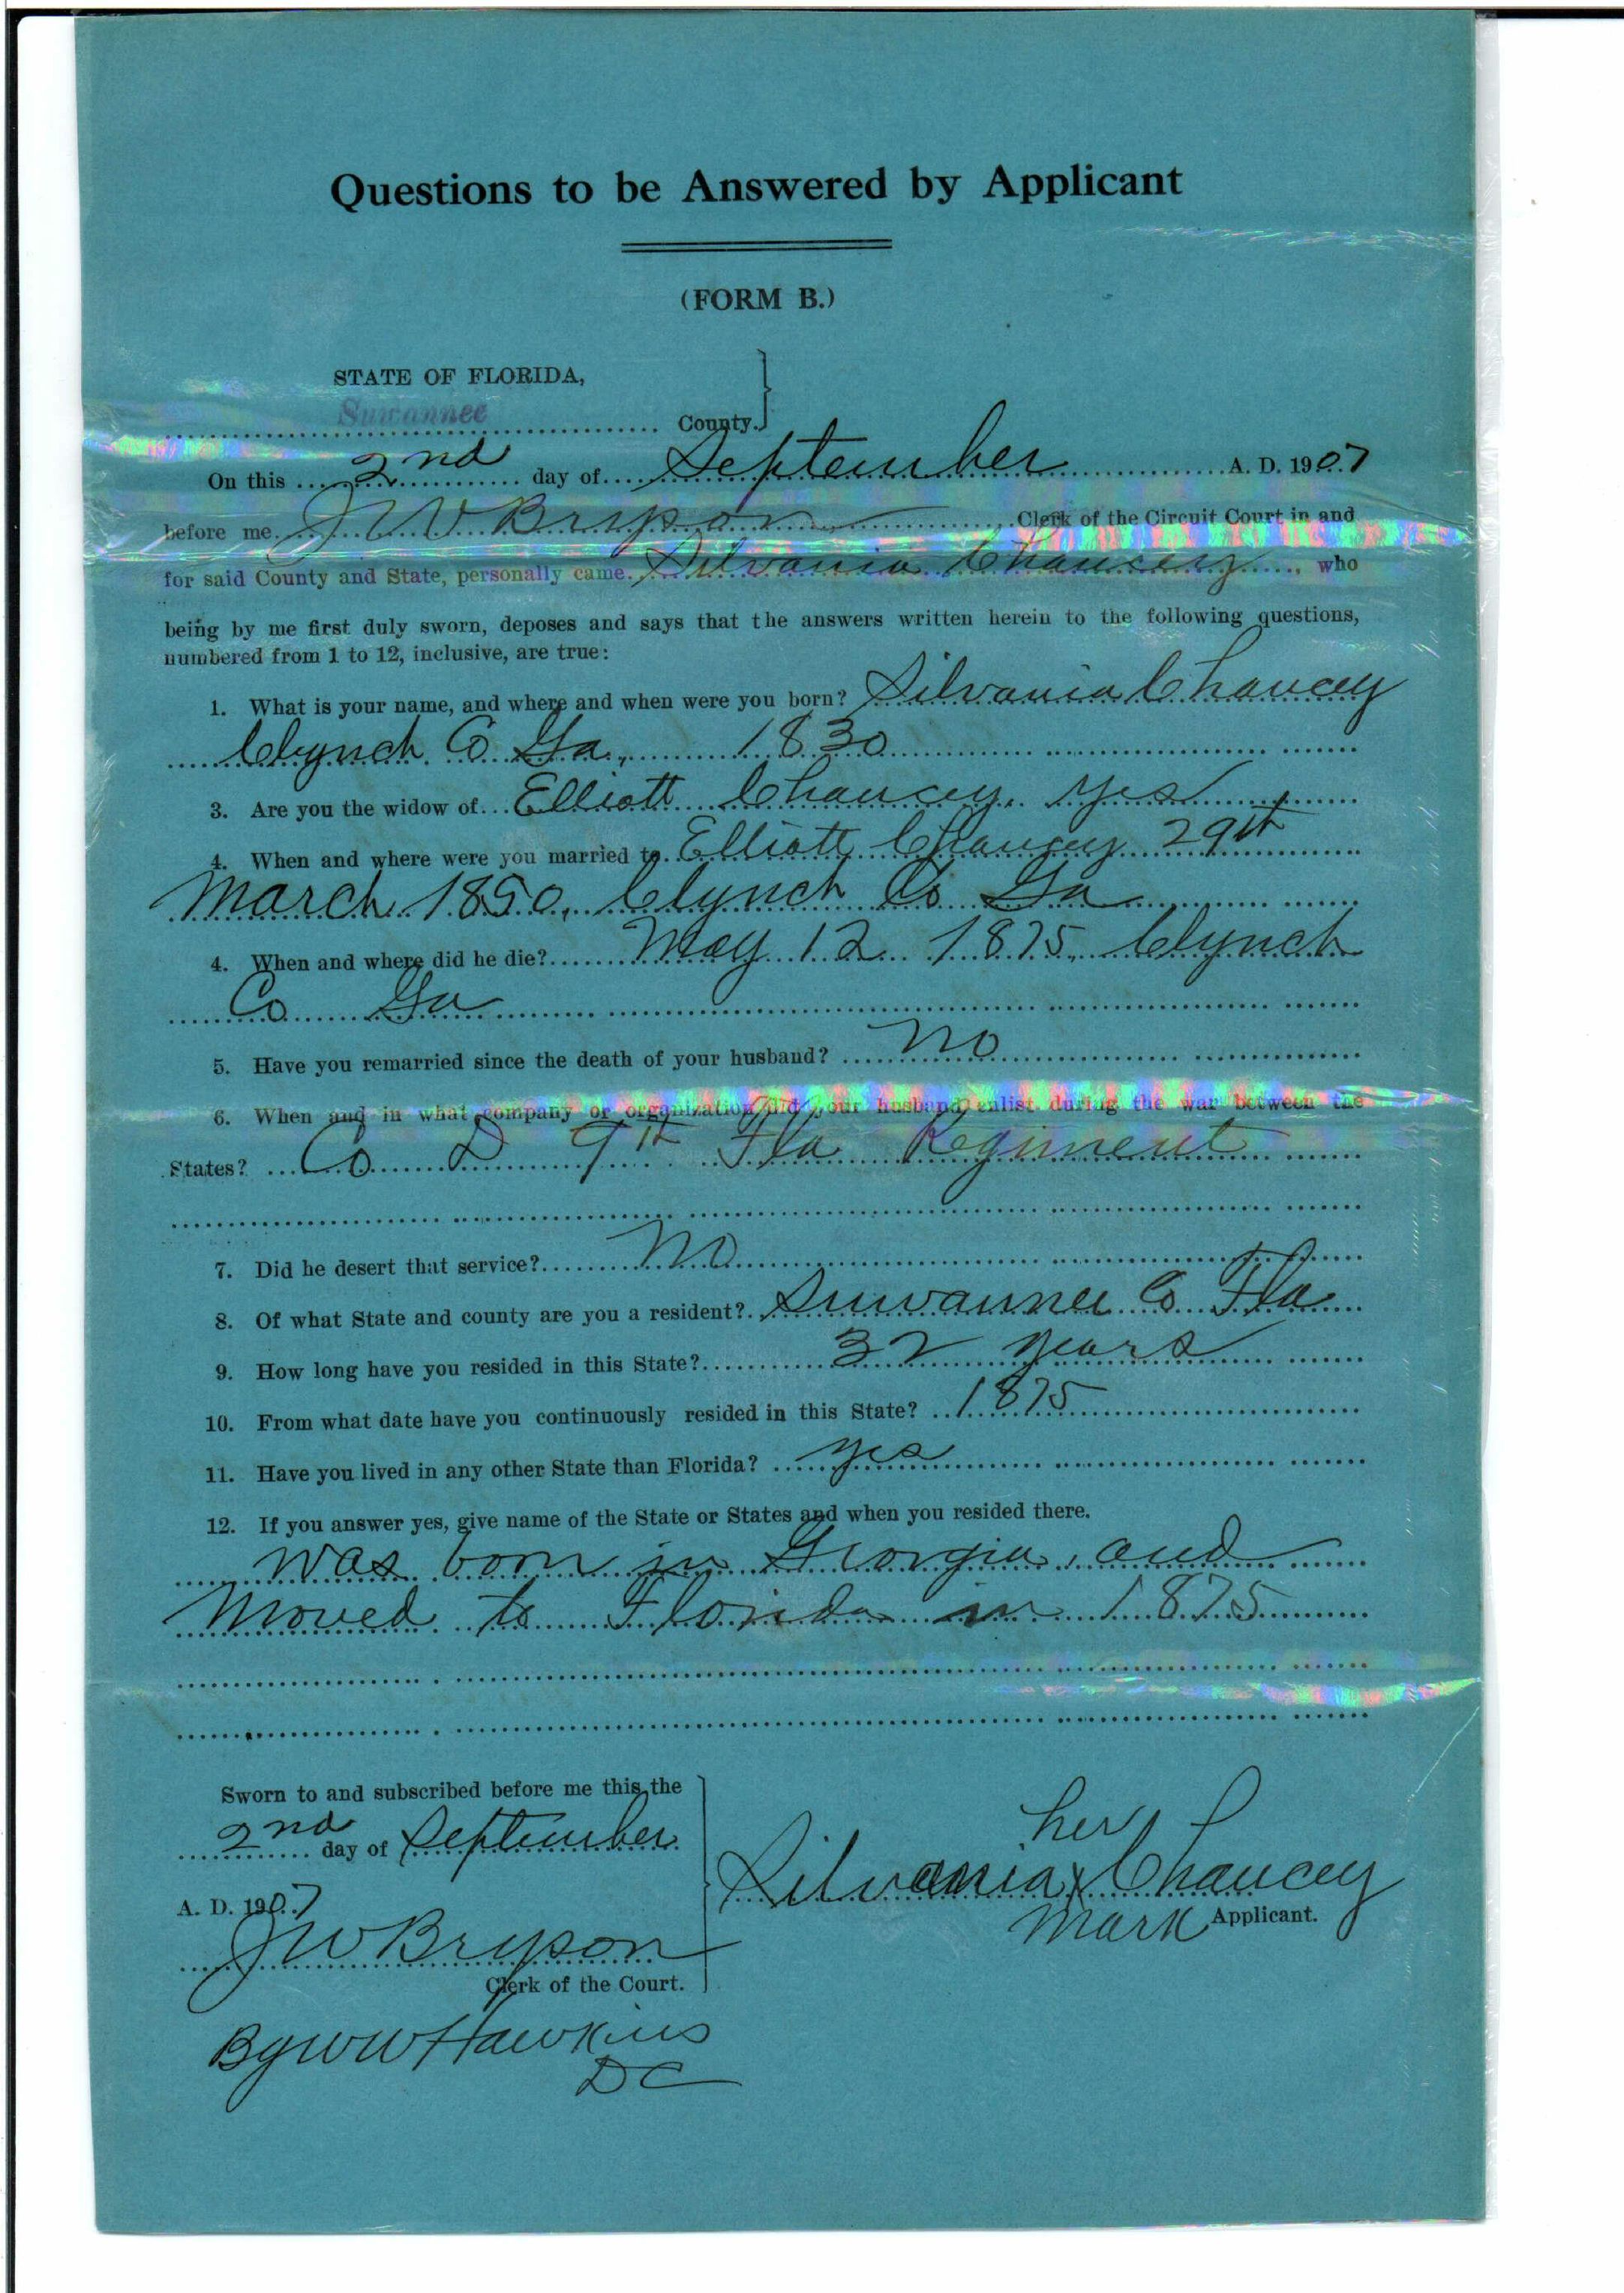 Questions to be Answered by Applicant
(FORM B.)
STATE OF FLORIDA,
Suwannee County.
On this 2nd day of September A. D. 1907
before me J W Bryson Clerk of the Circuit Court in and
for said County and State, personally came Silvania Chancey, who
being by me first duly sworn, deposes and says that the answers written herein to the following questions,
numbered from 1 to 12, inclusive, are true:
1. What is your name, and where and when were you born? Silvania Chancey
Clynch Co Ga, 1830
3. Are you the widow of Elliott Chancey, yes
4. When and where were you married to Elliott Chancey 29th
March 1850, Clynch Co Ga
4. When and where did he die? May 12 1875, Clynch
Co Ga
5. Have you remarried since the death of your husband? No
6. When and in what company or organization did your husband enlist during the war between the
States? Co D 9th Fla Regiment
7. Did he desert that service? No
8. Of what State and county are you a resident? Suwannee Co Fla
9. How long have you resided in this State? 32 years
10. From what date have you continuously resided in this State? 1875
11. Have you lived in any other State than Florida? yes
12. If you answer yes, give name of the State or States and when you resided there.
was born in Georgia, and
moved to Florida in 1875
Sworn to and subscribed before me this the
2nd day of September
A. D. 1907
J W Bryson
Clerk of the Court.
By W W Hawkins
DC
her
Silvania x Chancey
mark Applicant.